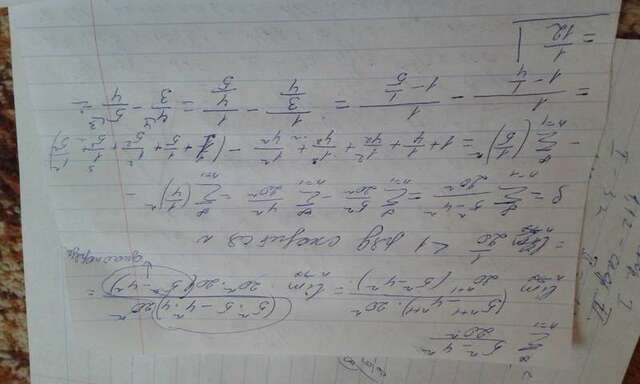 ∑_{n=1}^{∞} (5^n - 4^n)/20^n
lim_{n→∞} ((5^{n+1} - 4^{n+1}) · 20^n)/(20^{n+1} (5^n - 4^n)) = lim_{n→∞} ((5^n · 5 - 4^n · 4) · 20^n)/(20^n · 20 (5^n - 4^n)) =
= lim_{n→∞} 1/20 < 1 ряд сходится
S = ∑_{n=1}^{∞} (5^n - 4^n)/20^n = ∑_{n=1}^{∞} 5^n/20^n - ∑_{n=1}^{∞} 4^n/20^n = ∑_{n=1}^{∞} (1/4)^n -
- ∑_{n=1}^{∞} (1/5)^n = 1 + 1/4 + 1/4^2 + 1/4^3 + 1/4^n - (1 + 1/5 + 1/5^2 + 1/5^3 + 1/5^n)
= 1/(1 - 1/4) - 1/(1 - 1/5) = 1/(3/4) - 1/(4/5) = 4/3 - 5/4 =
= 1/12